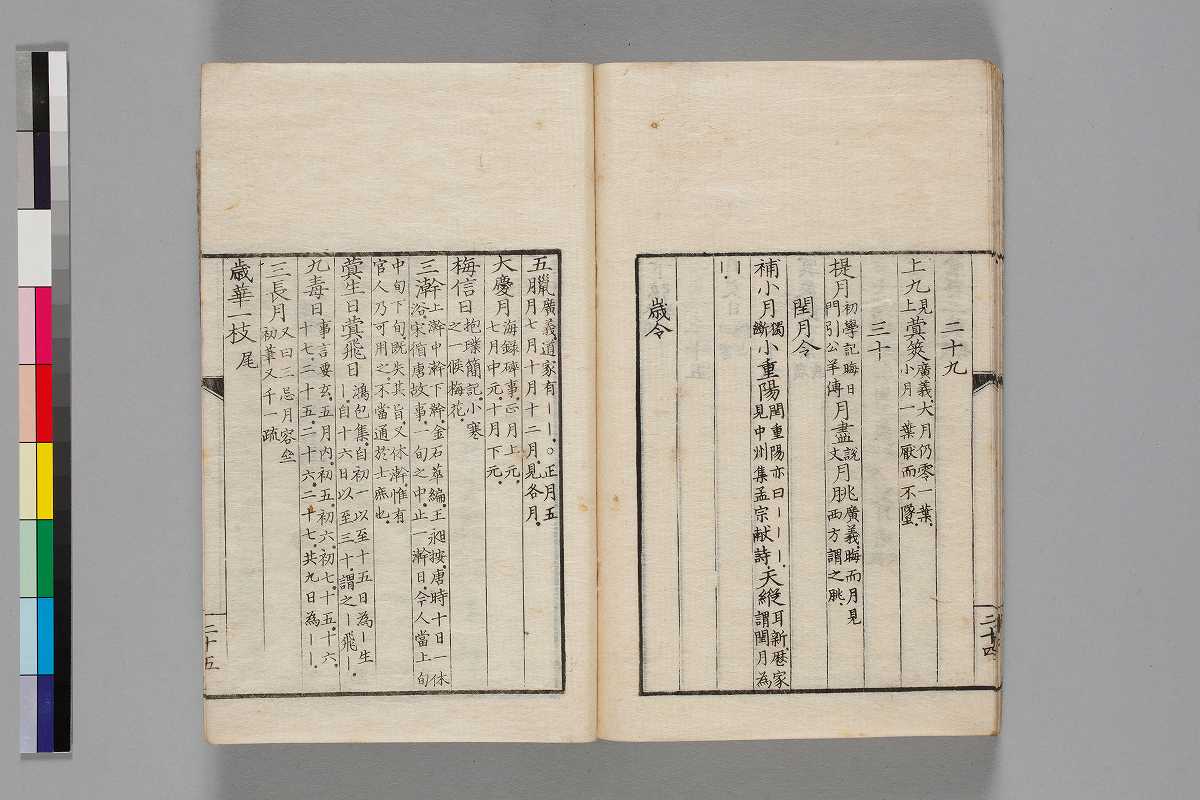 二十九
上九見上蓂筴廣義大月仍零一葉小月一葉厭而不墜
三十
提月初學記晦日門引公羊傳月盡說文月朓廣義晦而月見西方謂之朓
閏月令
補小月獨斷小重陽閏重陽亦曰ーーー見中州集孟宗献詩天縱耳新暦家謂閏月為
ーー
歳令
二十四
五臘廣義道家有ーー。正月五月七月十月十二月見各月
大慶月海録碎事正月上元七月中元十月下元
梅信日抱璞簡記小寒之一候梅花
三澣上澣中澣下澣金石萃編王昶按唐時十日一休浴宋循唐故事一旬之中止一澣日今人當上旬
中旬下旬既失其旨又休澣惟有官人乃可用之不當通於士庶也
蓂生日蓂飛日鴻包集自初一以至十五日為ー生ー自十六日以至三十謂之ー飛ー
九毒日事言要玄五月内初五初六初七十五十六十七二十五二十六二十七共九日為ーー
三長月又曰三忌月容坐初筆又千一疏
歳華一枝尾
二十五